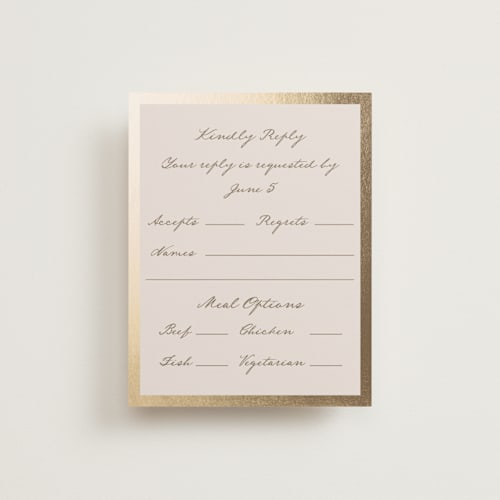 Kindly Reply
Your reply is requested by
June 5
Accepts ____ Regrets ____
Names ____
Meal Options
Beef ____ Chicken ____
Fish ____ Vegetarian ____